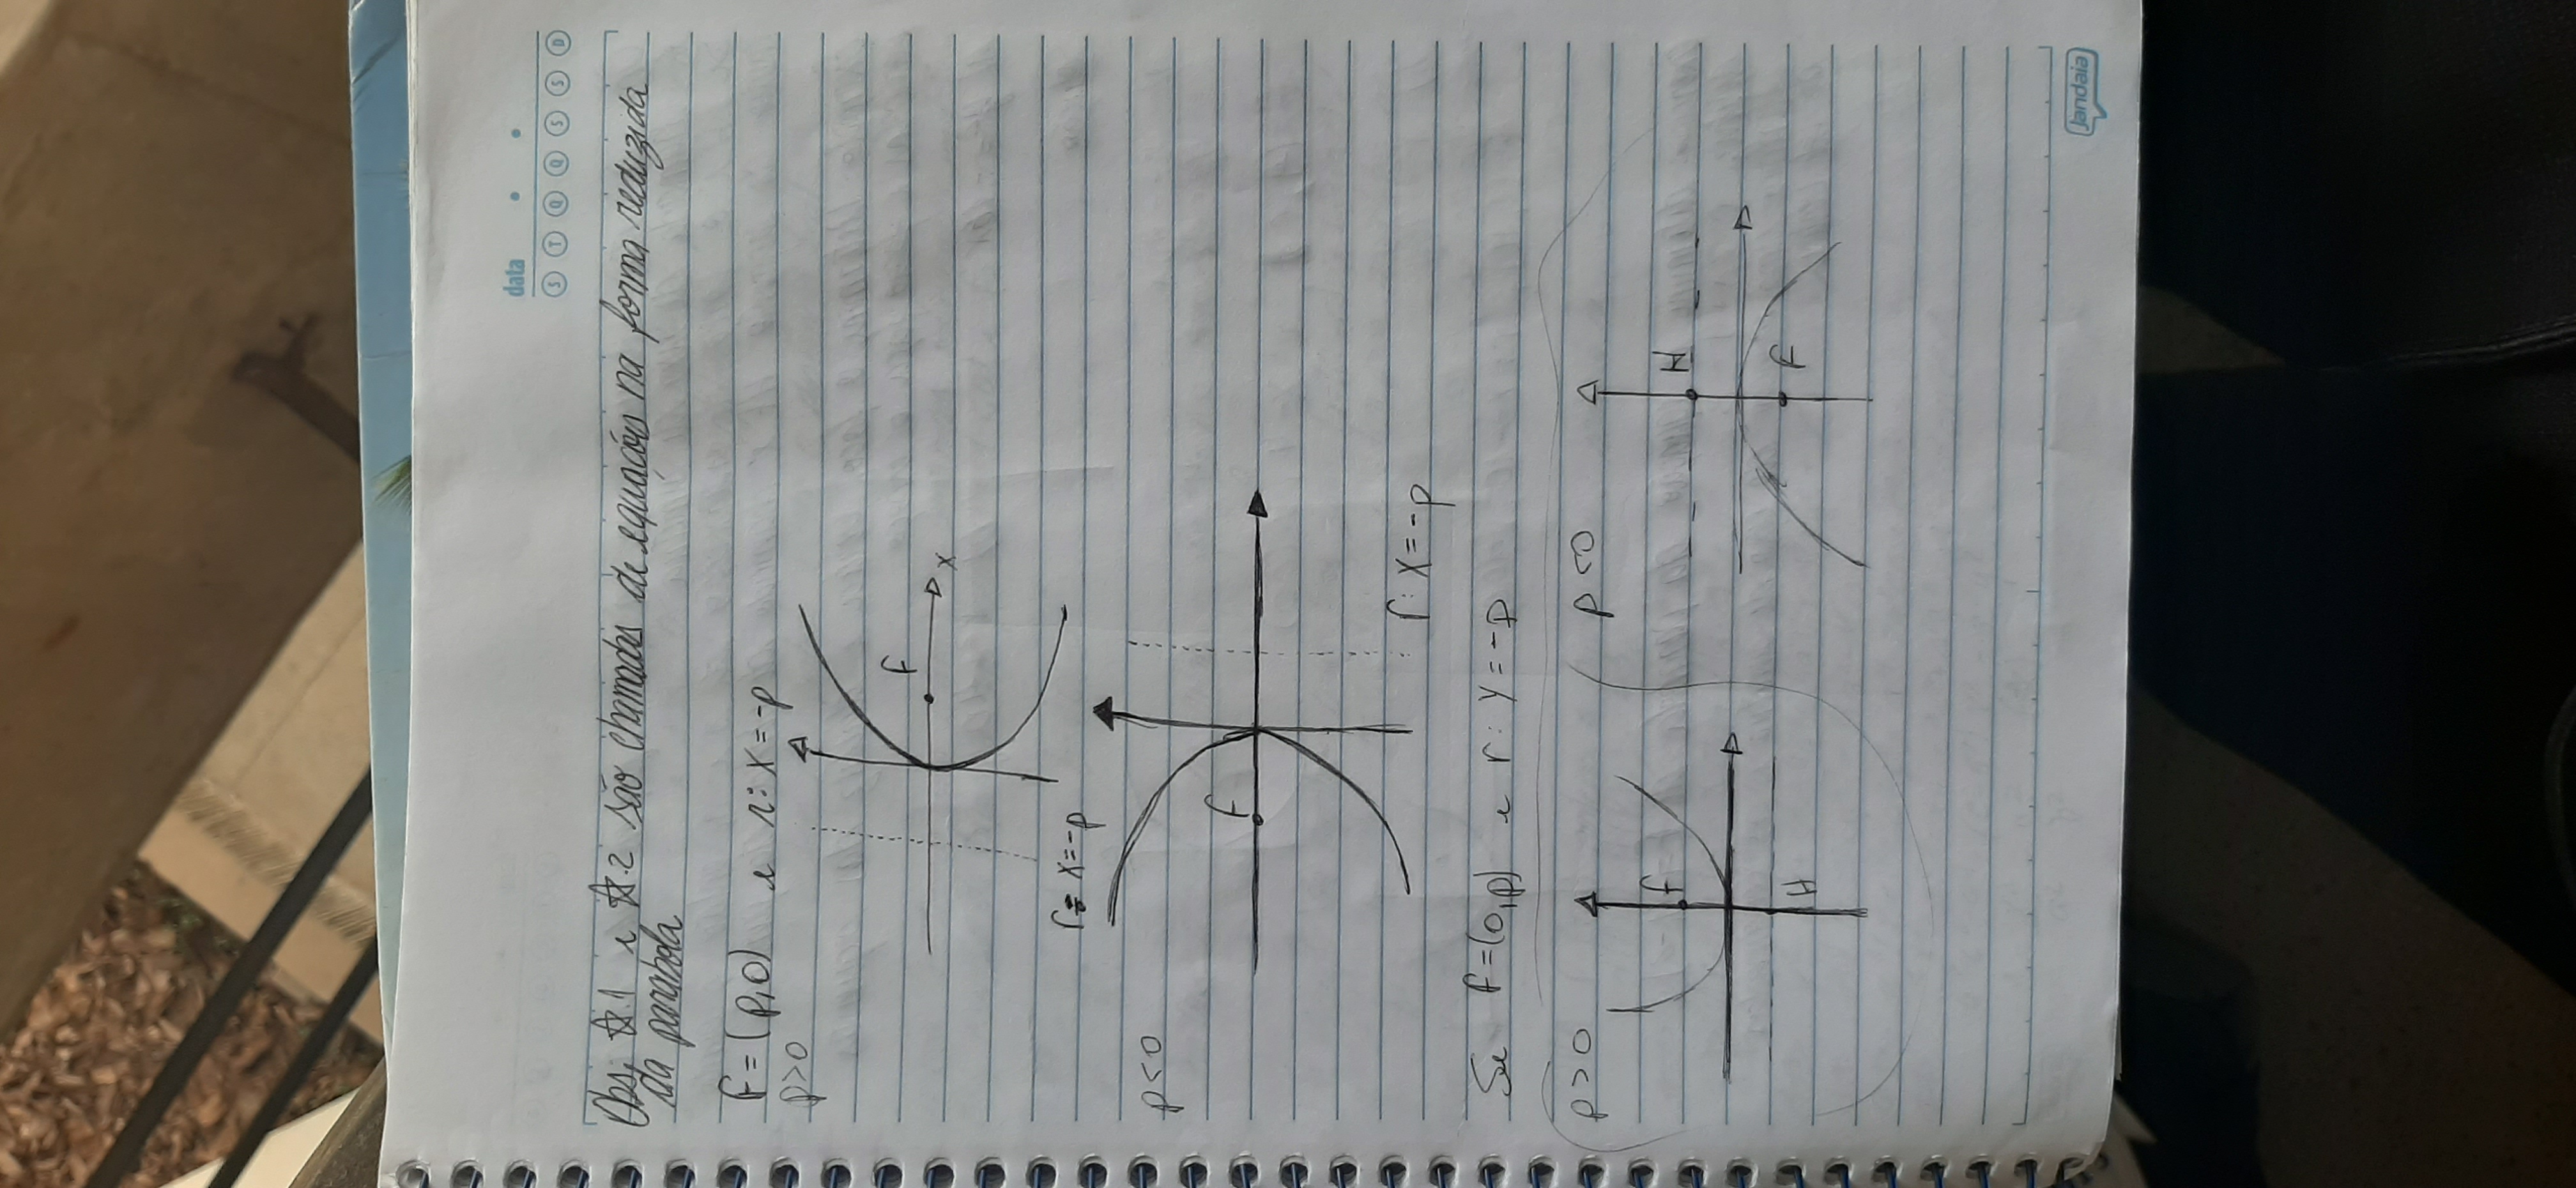 data
S T Q Q S S D
Obs: ☆.1 e ☆.2 são chamados de equações na forma reduzida
da parabola
F=(p,0) e r: x=-p
p>0
F
x
r: x=-p
p<0
F
r: x=-p
Se F=(0,p) e r: y=-p
p>0
p<0
F
H
H
F
Jandaia